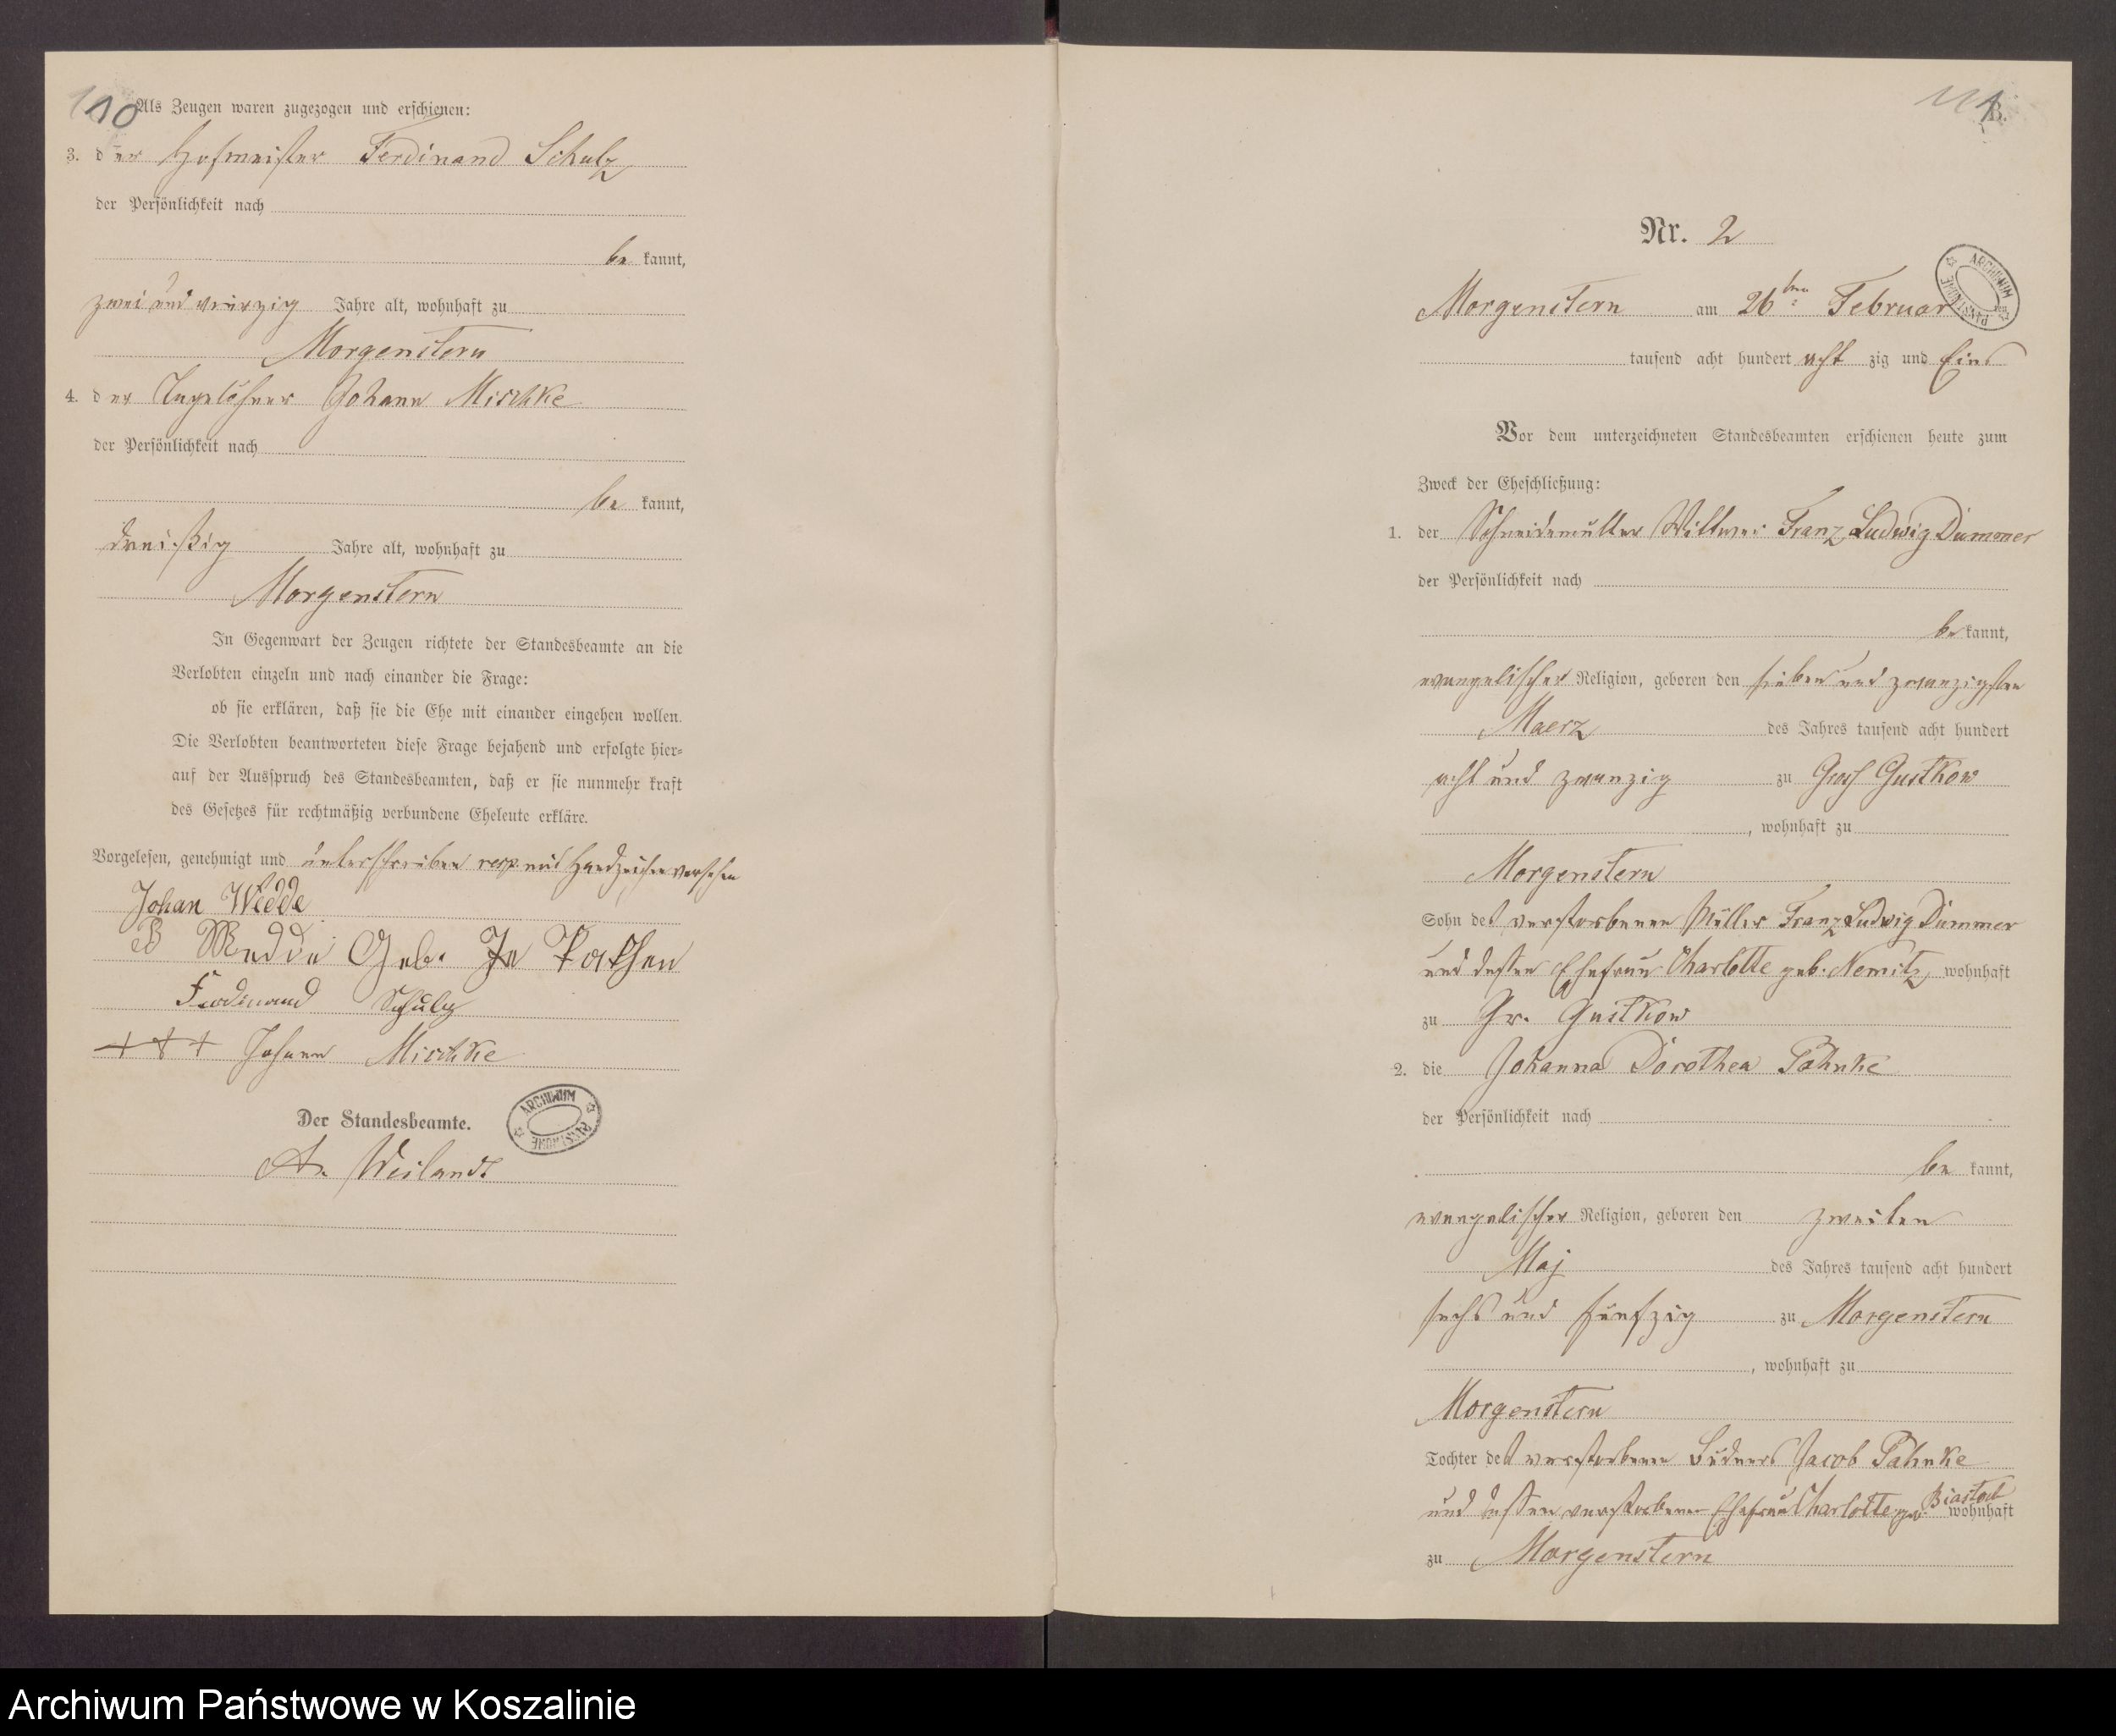 110
Als Zeugen waren zugezogen und erschienen:
3. der Hofmeister Ferdinand Schulz
der Persönlichkeit nach
be kannt,
zwei und vierzig Jahre alt, wohnhaft zu
Morgenstern
4. der Tagelöhner Johann Mischke
der Persönlichkeit nach
be kannt,
dreißig Jahre alt, wohnhaft zu
Morgenstern
In Gegenwart der Zeugen richtete der Standesbeamte an die
Verlobten einzeln und nach einander die Frage:
ob sie erklären, daß sie die Ehe mit einander eingehen wollen.
Die Verlobten beantworteten diese Frage bejahend und erfolgte hier-
auf der Ausspruch des Standesbeamten, daß er sie nunmehr kraft
des Gesetzes für rechtmäßig verbundene Eheleute erkläre.
Vorgelesen, genehmigt und unterschrieben resp. mit Handzeichen versehen
Johan Wedde
Wedde Geb.
Ferdinand Schulz
+++ Johann Mischke
Der Standesbeamte.
A. Weilandt
ARCHIWUM PAŃSTWOWE
111
B.
Nr. 2
Morgenstern am 26ten Februar
tausend acht hundert acht zig und Eins
ARCHIWUM PAŃSTWOWE
Vor dem unterzeichneten Standesbeamten erschienen heute zum
Zweck der Eheschließung:
1. der Schneidemüller Wittwer Franz Ludwig Dummer
der Persönlichkeit nach
be kannt,
evangelischer Religion, geboren den sieben und zwanzigsten
Maerz des Jahres tausend acht hundert
acht und zwanzig zu Groß Gustkow
, wohnhaft zu
Morgenstern
Sohn des verstorbenen Müller Franz Ludwig Dummer
und dessen Ehefrau Charlotte geb. Nemitz wohnhaft
zu Gr. Gustkow
2. die Johanna Dorothea Pahnke
der Persönlichkeit nach
be kannt,
evangelischer Religion, geboren den zweiten
Maj des Jahres tausend acht hundert
sechs und fünfzig zu Morgenstern
, wohnhaft zu
Morgenstern
Tochter des verstorbenen Büdners Jacob Pahnke
und dessen verstorbenen Ehefrau Charlotte geb. wohnhaft
zu Morgenstern
Archiwum Państwowe w Koszalinie